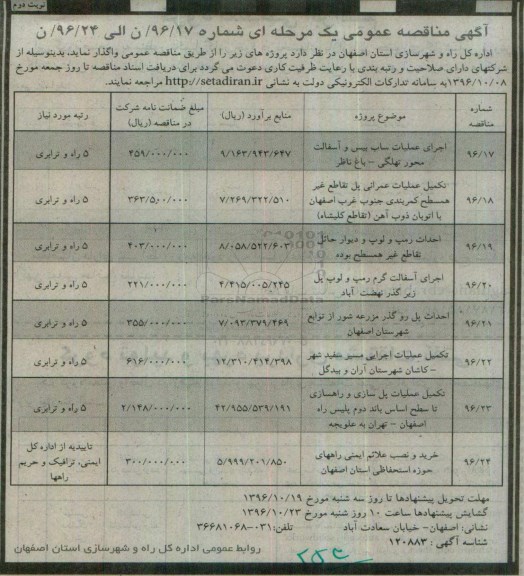 نوبت دوم
آگهی مناقصه عمومی یک مرحله ای شماره ۹۶/۱۷/ ن الی ۹۶/۲۴/ ن
اداره کل راه و شهرسازی استان اصفهان در نظر دارد پروژه های زیر را از طریق مناقصه عمومی واگذار نماید. بدینوسیله از
شرکتهای دارای صلاحیت و رتبه بندی با رعایت ظرفیت کاری دعوت می گردد برای دریافت اسناد مناقصه تا روز جمعه مورخ
۱۳۹۶/۱۰/۰۸ به سامانه تدارکات الکترونیکی دولت به نشانی http://setadiran.ir مراجعه نمایند.
شماره مناقصه | موضوع پروژه | منابع برآورد (ریال) | مبلغ ضمانت نامه شرکت در مناقصه (ریال) | رتبه مورد نیاز
۹۶/۱۷ | اجرای عملیات ساب بیس و آسفالت محور نهلگی – باغ ناظر | ۹/۱۶۳/۹۴۳/۶۴۷ | ۴۵۹/۰۰۰/۰۰۰ | ۵ راه و ترابری
۹۶/۱۸ | تکمیل عملیات عمرانی پل تقاطع غیر همسطح کمربندی جنوب غرب اصفهان با اتوبان ذوب آهن (تقاطع کلیشاه) | ۷/۲۶۹/۳۲۲/۵۱۰ | ۳۶۳/۵۰۰/۰۰۰ | ۵ راه و ترابری
۹۶/۱۹ | احداث رمپ و لوپ و دیوار حائل تقاطع غیر همسطح بوده | ۸/۰۵۸/۵۲۲/۶۰۳ | ۴۰۳/۰۰۰/۰۰۰ | ۵ راه و ترابری
۹۶/۲۰ | اجرای آسفالت گرم رمپ و لوپ پل زیر گذر نهضت آباد | ۴/۴۱۵/۰۰۵/۲۴۵ | ۲۲۱/۰۰۰/۰۰۰ | ۵ راه و ترابری
۹۶/۲۱ | احداث پل رو گذر مزرعه شور از توابع شهرستان اصفهان | ۷/۰۹۳/۳۷۹/۴۶۹ | ۳۵۵/۰۰۰/۰۰۰ | ۵ راه و ترابری
۹۶/۲۲ | تکمیل عملیات اجرایی مسیر سفید شهر – کاشان شهرستان آران و بیدگل | ۱۲/۳۱۰/۴۱۴/۳۹۸ | ۶۱۶/۰۰۰/۰۰۰ | ۵ راه و ترابری
۹۶/۲۳ | تکمیل عملیات پل سازی و راهسازی تا سطح اساس باند دوم پلیس راه اصفهان – تهران به علویجه | ۴۲/۹۵۵/۵۳۹/۱۹۱ | ۲/۱۴۸/۰۰۰/۰۰۰ | ۵ راه و ترابری
۹۶/۲۴ | خرید و نصب علائم ایمنی راههای حوزه استحفاظی استان اصفهان | ۵/۹۹۹/۲۰۱/۸۵۰ | ۳۰۰/۰۰۰/۰۰۰ | تاییدیه از اداره کل ایمنی، ترافیک و حریم راهها
مهلت تحویل پیشنهادها تا روز سه شنبه مورخ ۱۳۹۶/۱۰/۱۹
گشایش پیشنهادها ساعت ۱۰ روز شنبه مورخ ۱۳۹۶/۱۰/۲۳
نشانی: اصفهان- خیابان سعادت آباد تلفن: ۰۳۱-۳۶۶۸۱۰۶۸
شناسه آگهی : ۱۲۰۸۸۳
روابط عمومی اداره کل راه و شهرسازی استان اصفهان